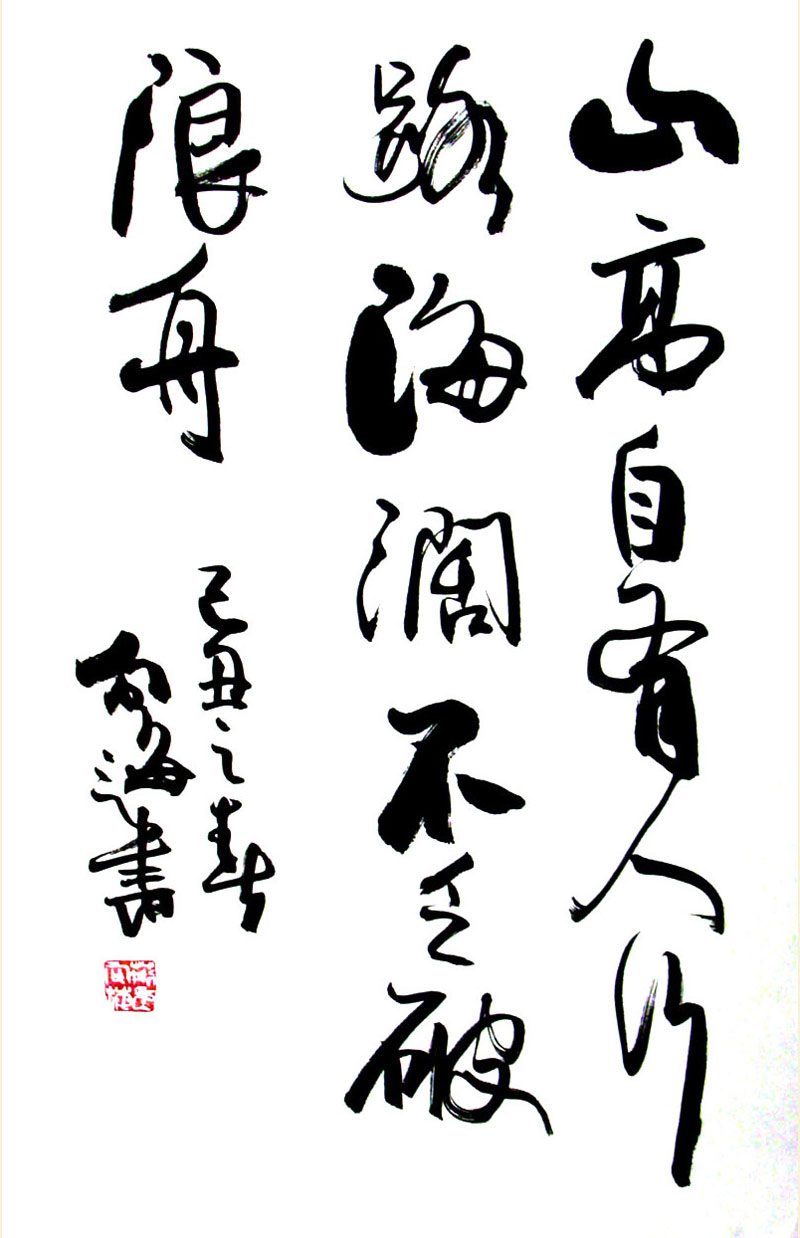 山高自有人行
路海濶不乏破
浪舟
己丑之春
海書